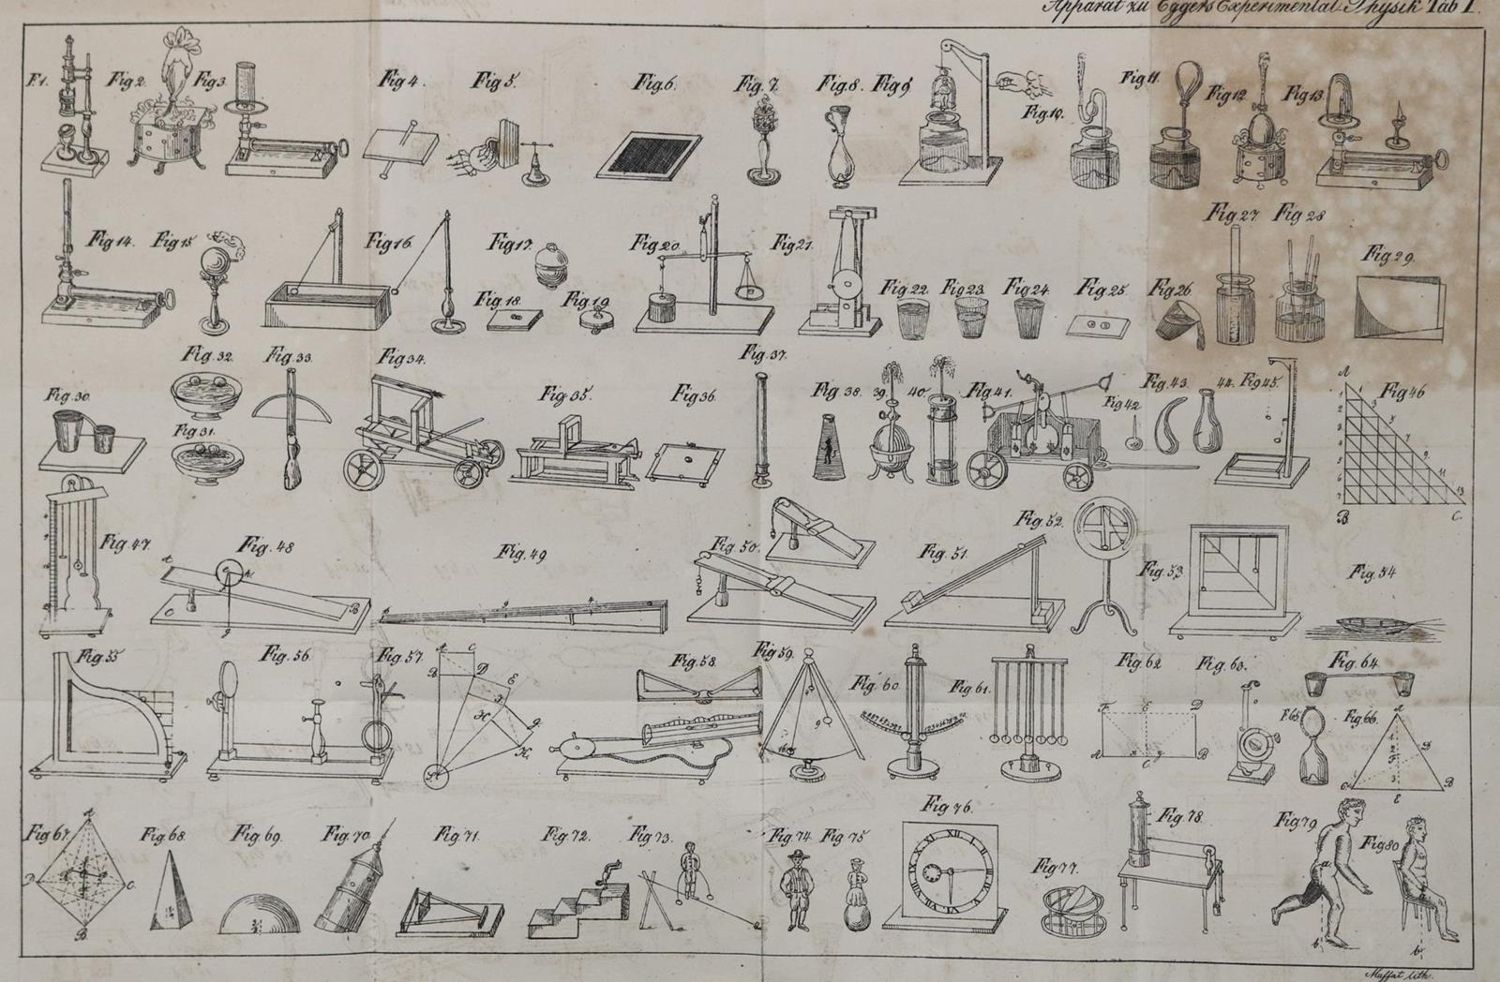 Apparat zu Eggers Experimental-Physik Tab I.
F. 1. Fig 2. Fig 3. Fig 4. Fig 5. Fig. 6. Fig. 7. Fig. 8. Fig 9 Fig. 10. Fig 11. Fig 12. Fig 13.
Fig 14. Fig 15 Fig 16. Fig 17. Fig. 18. Fig 19 Fig 20. Fig 21. Fig 22 Fig 23. Fig 24 Fig 25 Fig 26. Fig 27 Fig 28 Fig 29
Fig 30. Fig. 32. Fig. 31. Fig. 33. Fig 34. Fig 35. Fig 36. Fig. 37. Fig 38. 39. 40. Fig 41. Fig 42 Fig. 43. 44. Fig 45. Fig 46
A
1 3 5 7 9 11 13
1 2 3 4 5 6 7
B C.
Fig. 47. Fig. 48 Fig. 49 Fig. 50. Fig. 51. Fig. 52. Fig. 53 Fig. 54
A C B
Fig 55 Fig. 56. Fig. 57. Fig. 58. Fig 59. Fig. 60 Fig 61. Fig 62 Fig. 63. Fig. 64. F. 65. Fig 66.
A C B D E
F E D A C B
A D C E B
Fig 67. Fig 68 Fig. 69. Fig 70. Fig. 71. Fig. 72. Fig. 73. Fig. 74. Fig 75 Fig 76. Fig 77. Fig. 78. Fig 79 Fig 80
A D C B
XII I II III IV V VI VII VIII IX X XI
b b
Maffat lith.